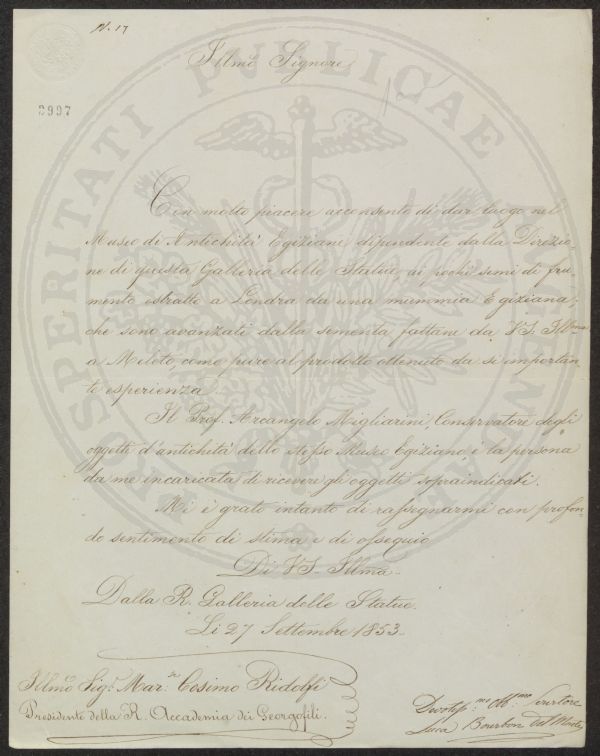 N. 17
Illmo Signore
2997
Con molto piacere acconsento di dar luogo nel
Museo di Antichità Egiziane, dipendente dalla Direzio-
ne di questa Galleria delle Statue, ai pochi semi di fru-
mento estratto a Londra da una mummia Egiziana,
che sono avanzati dalla sementa fattane da VS. Illma
a Meleto, come pure al prodotto ottenuto da sì importan-
te esperienza.
Il Prof. Arcangelo Migliarini, Conservatore degli
oggetti d'antichità dello stesso Museo Egiziano è la persona
da me incaricata di ricevere gli oggetti sopraindicati.
Mi è grato intanto di rassegnarmi con profon-
do sentimento di stima e di ossequio
Di VS. Illma
Dalla R. Galleria delle Statue.
Li 27 Settembre 1853.
Illmo Sig.r Mar.se Cosimo Ridolfi
Presidente della R. Accademia dei Georgofili.
Devotiss.mo Obb.mo Servitore
Luca Bourbon del Monte
PROSPERITATI PUBLICAE